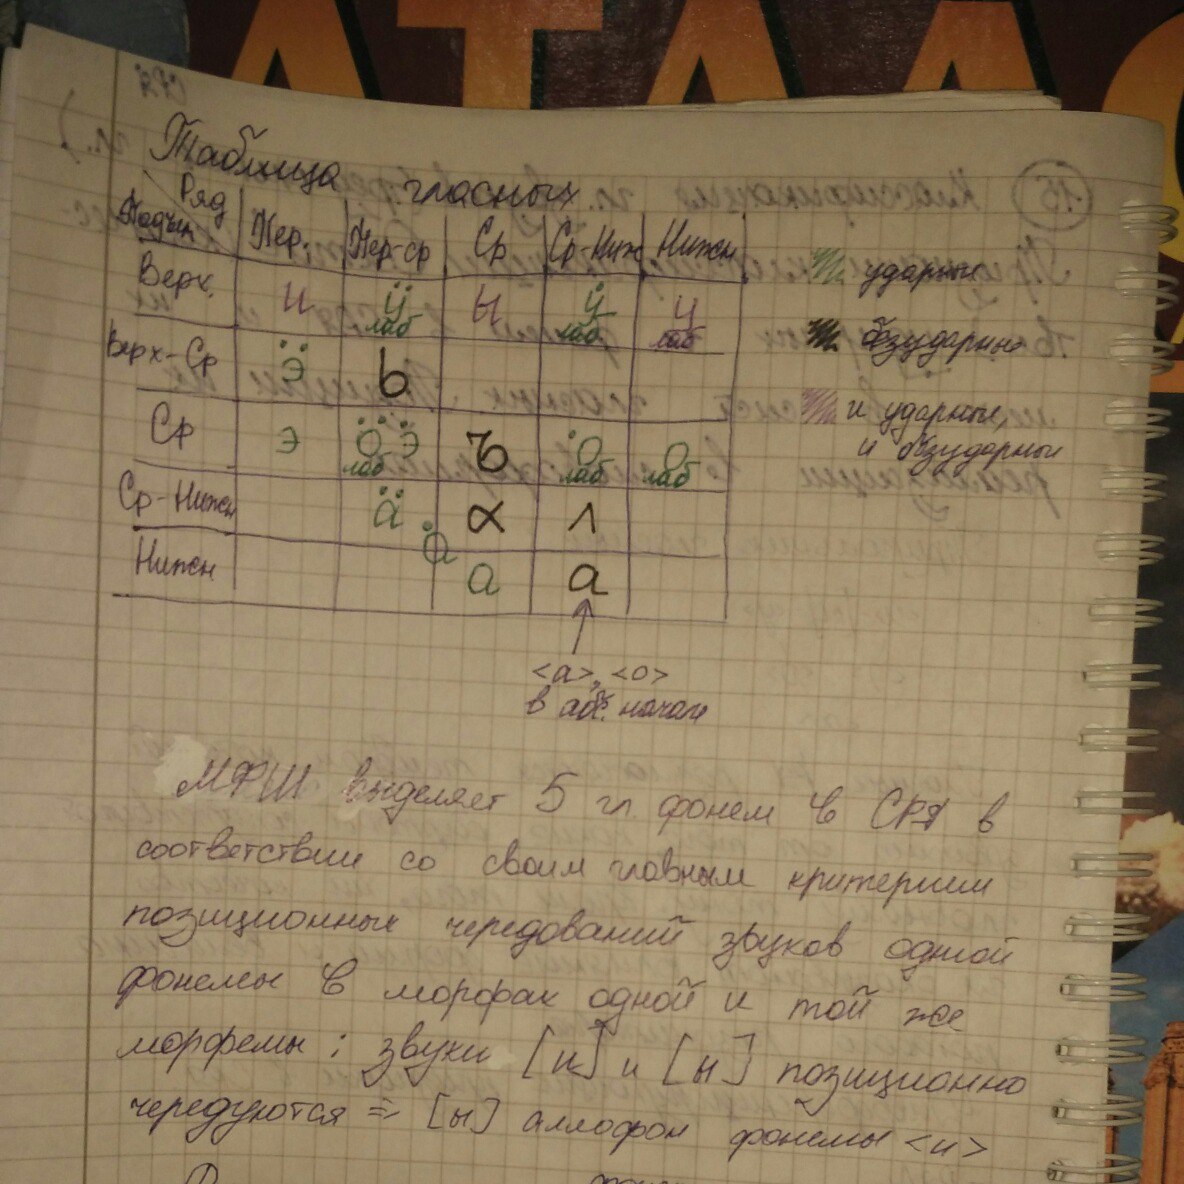 АТЛАС
СРЯ
Таблица гласных
Ряд
Подъём Пер. Пер-ср Ср Ср-Нижн Нижн
Верх. и ӱ лаб ы у̇ лаб у лаб
Верх-Ср ӭ ь
Ср э ö лаб ӭ ъ о̇ лаб о лаб
Ср-Нижн ä α ʌ
ȧ
Нижн а а
ударные
безударные
и ударные,
и безударные
<а>, <о>
в абс. начале
МФШ выделяет 5 гл. фонем в СРЯ в
соответствии со своим главным критерием
позиционных чередований звуков одной
фонемы в морфах одной и той же
морфемы: звуки [и] и [ы] позиционно
чередуются => [ы] аллофон фонемы <и>